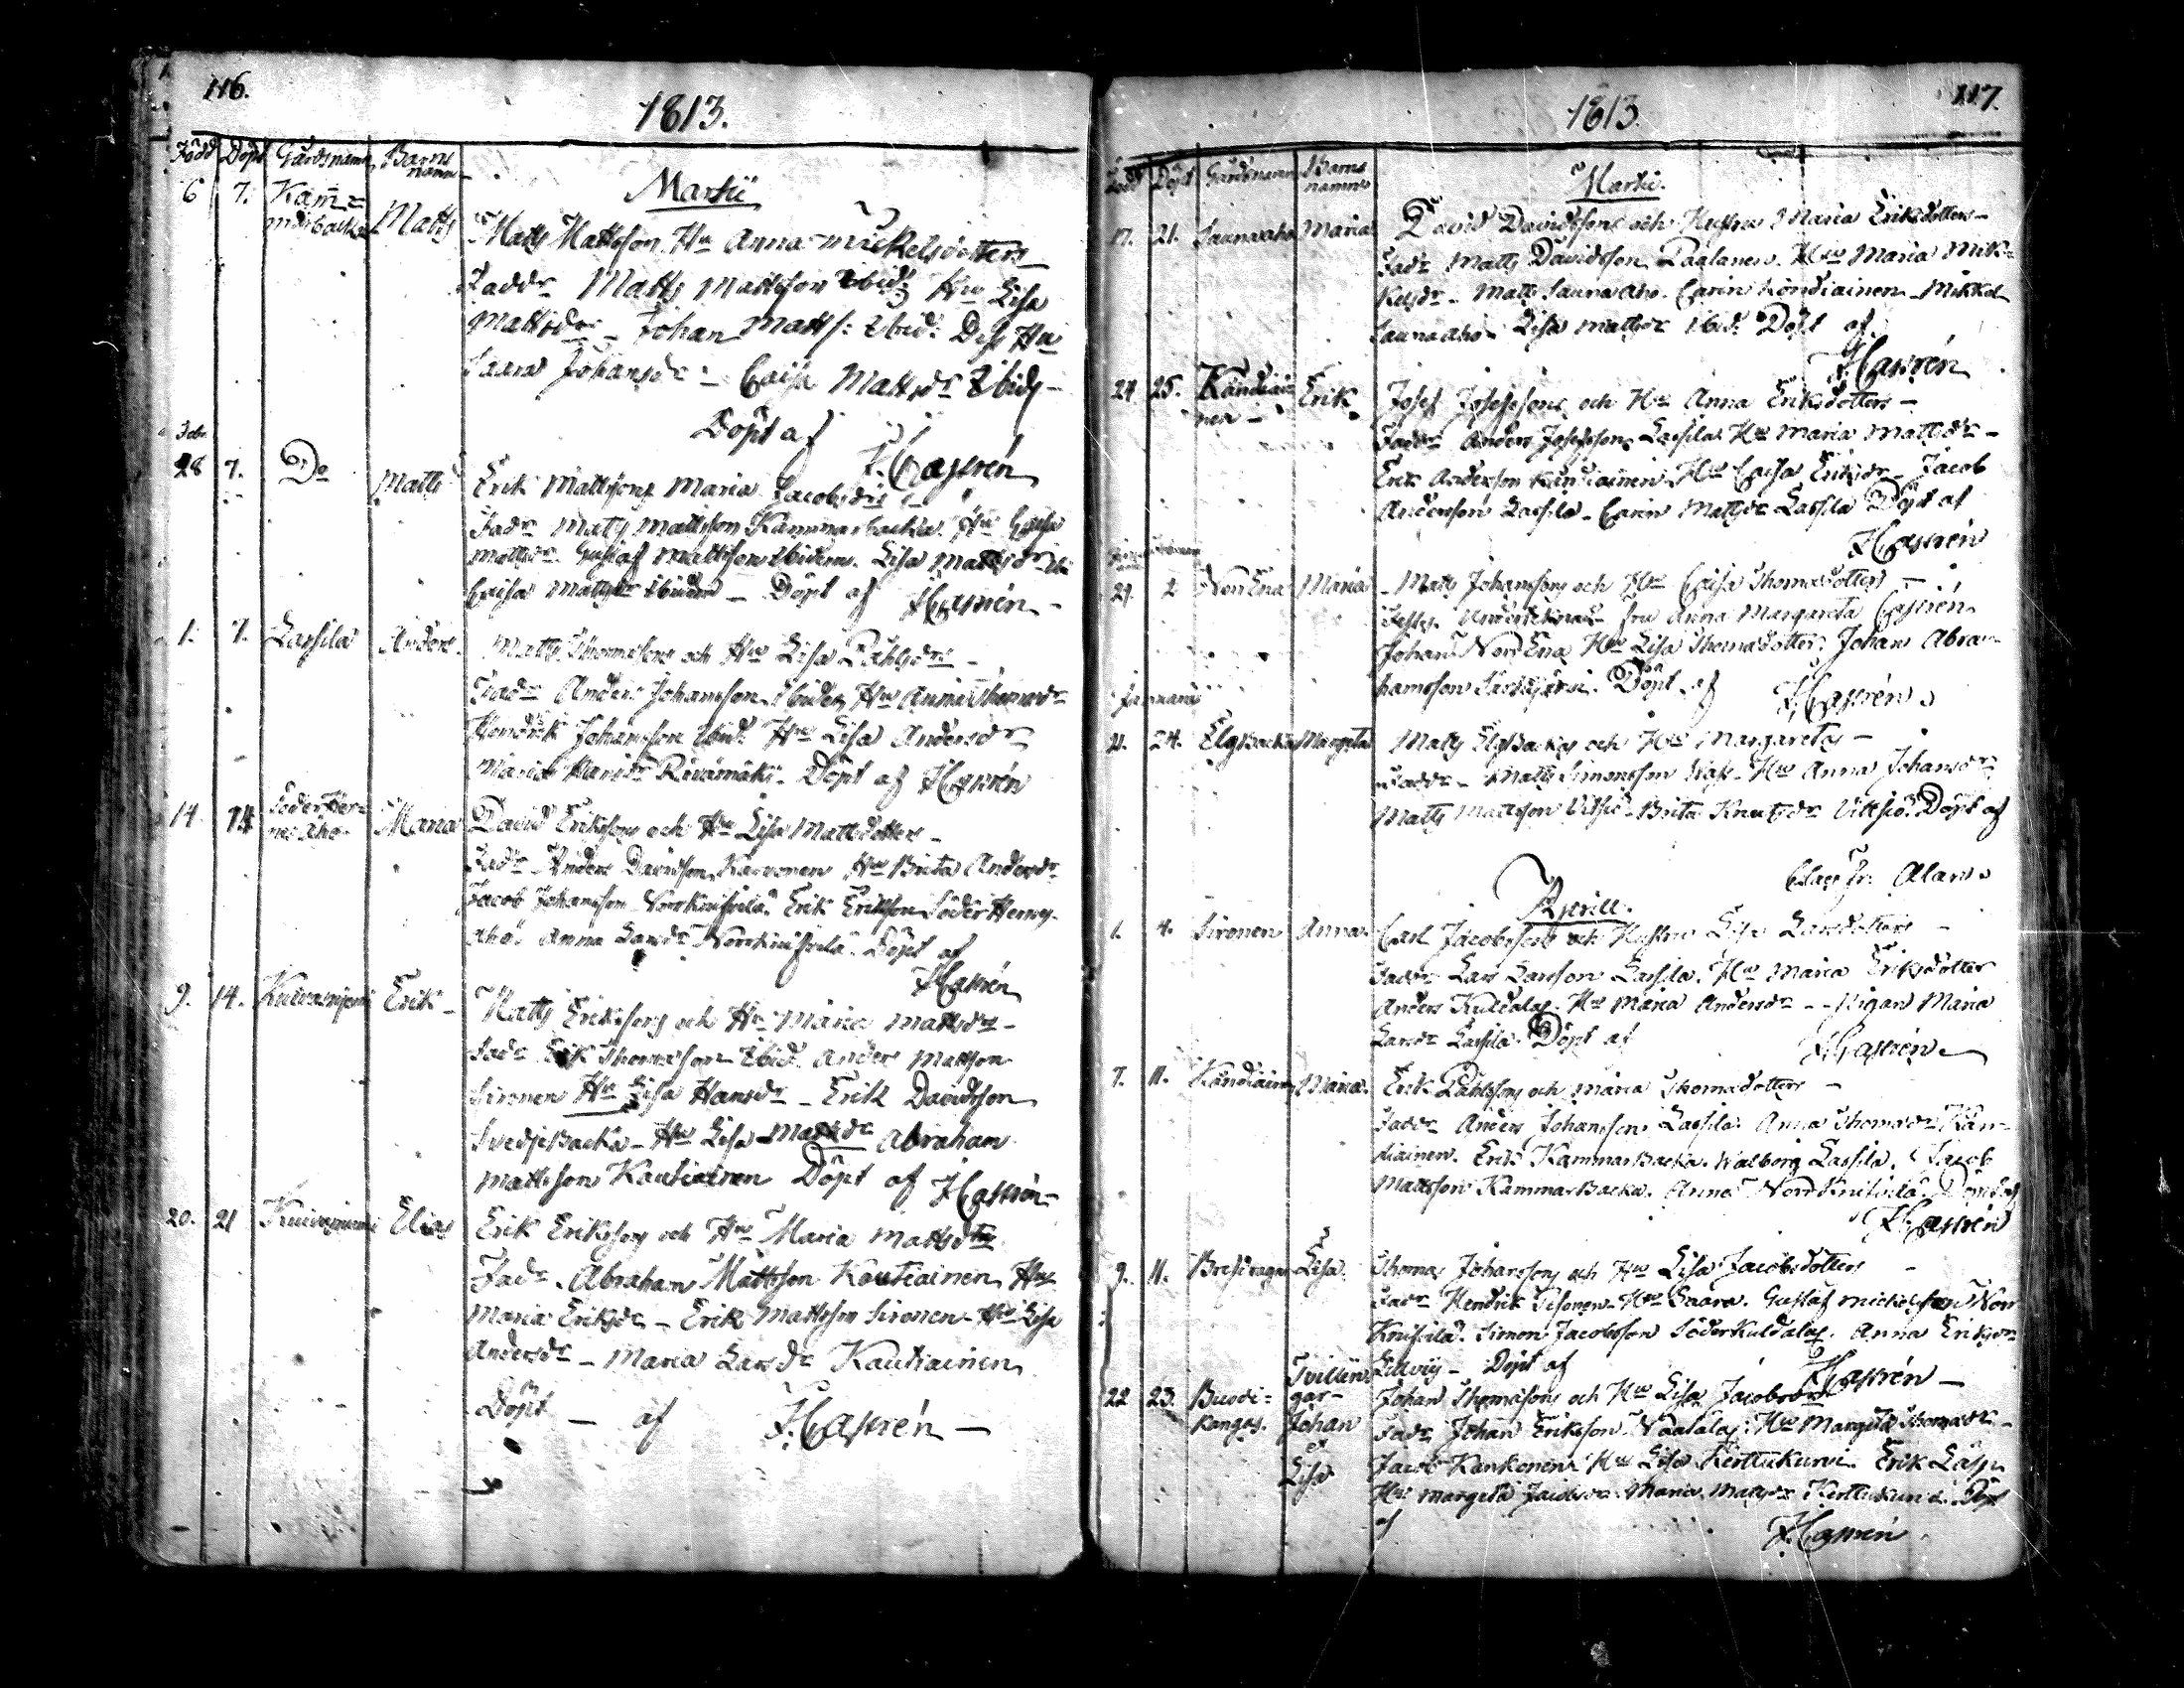 116.
1813.
Född Döpt Gårdsnamn Barns namn
Martii
6 7. Kam̄= marbacka Matts
Matts Mattsson Hu Anna Mickelsdotters
Faddr Matts Mattsson Ibid: Hu Lisa
Mattsdr - Johan Matts: Ibid: Dess Hu
Saara Johansdr - Caisa Mattsdr Ibid -
Döpt af
F. Casrén
Febr.
28 7. Do Matts
Erik Mattssons Maria Jacobsdrs
Fadr Matts Mattsson Kammarbacka Hu Caisa
Mattsdr. Gustaf Mattsson Ibidem. Lisa Mattsdr Ibi
Caisa Mattsdr Ibidem - Döpt af F. Casrén -
1. 7. Lassila Anders.
Matts Thomassons och Hu Lisa Påhlsdrs -
Fadr Anders Johansson Ibidem Hu Anna Thomasdr
Hendrik Johansson Ibid: Hu Lisa Andersdr
Maria Hansdr Rivämäki. Döpt af F. Casrén
14. 14 Söder Her= ne Aho. Maria
David Erikssons och Hu Lisa Mattsdotters -
Fadr Anders Davidsson Karvonen Hu Brita Andersdr
Jacob Johansson Norrknifsilä. Erik Eriksson Söder Herne
aho. Anna Larsdr Norrknifsilä. Döpt af
F. Casrén
9. 14. Kuivasniemi Erik -
Matts Erikssons och Hu Maria Mattsdrs -
Fadr Erik Thomasson Ibid. Anders Mattsson
Sironen Hu Lisa Hansdr - Erik Davidsson
Svedjebacka - Hu Lisa Mattsdr Abraham
Mattsson Kautiainen Döpt af F. Casrén -
20. 21 Kuivasniemi Elias
Erik Erikssons och Hu Maria Mattsdtrs
Fadr. Abraham Mattsson Kautiainen Hu
Maria Eriksdr - Erik Mattsson Sironen - Hu Lisa
Andersdr - Maria Larsdr Kautiainen
Döpt - af F. Casrén -
117.
1813.
Född Döpt Gårdsnamn Barns namn
Martii.
17. 21. Saunaaho Maria
David Davidssons och Hustru Maria Eriksdotters -
Fadr Matts Davidsson Paalanen. Hu Maria Mik=
kelsdr - Matts Sauna Aho. Carin Köndiainen - Mikkel
Saunaaho - Lisa Mattsdr Ibid. Döpt af
F. Casrén
24 25. Kändiai= nen - Erik
Josef Josefssons och Hu Anna Eriksdotters -
Faddr Anders Josefsson Lassila Hu Maria Mattsdr -
Erik Andersson Kändiainen Hu Caisa Eriksdr - Jacob
Andersson Lassila - Carin Mattsdr Lassila Döpt af
F. Casrén
29. 2 Norr Ena Maria
Matts Johanssons och Hu Caisa Thomasdotters -
Testes. Undertecknad fru Anna Margareta Casrén
Johan Norr Ena Hu Lisa Thomasdotter. Johan Abra=
hamsson Saarijärvi. Döpt af F. Casrén
Januari
21. 24. Elgbacka Margeta
Matts Elgbackas och Hu Margaretas -
Faddr - Matts Simonsson Hu Anna Johansdr
Matts Mattsson Vitsiö - Brita Knutsdr Vittsiö. Döpt af
Alan.
Aprill.
1. 4. Sironen Anna.
Carl Jacobssons och Hustru Lisa Larsdotters -
Faddr Lars Larsson Lassila. Hu Maria Eriksdotter
Anders Kuldalas. Hu Maria Andersdr - Pigan Maria
Larsdr Lassila. Döpt af F. Casrén
7. 11. Kändiainen Maria.
Erik Påhlssons och Maria Thomasdotters -
Faddr Anders Johansson Lassila. Anna Thomasdr Kän=
diainen. Erik Kammarbacka. Walborg Lassila. Jacob
Mattsson Kammarbacka. Anna Norrknifsilä. Döpt af
F. Casrén
9. 11. Lisa.
Thomas Johanssons och Hu Lisa Jacobsdotters -
Fadr Hendrik Hu Saara. Gustaf Mickelsson Norr
Knifsilä. Simon Jacobsson Söderkuldalas. Anna Eriksdr
- Döpt af F. Casrén -
22 23. Tvillin= gar - Johan et Lisa
Johan Thomassons och Hu Lisa Jacobsdrs
Fadr Johan Eriksson Hu Margeta Thomasdr -
Jacob Kankonen Hu Lisa Kerttukurvi. Erik
Hu Margeta Jacobsdr. Maria Mattsdr Döpt
af
F. Casrén